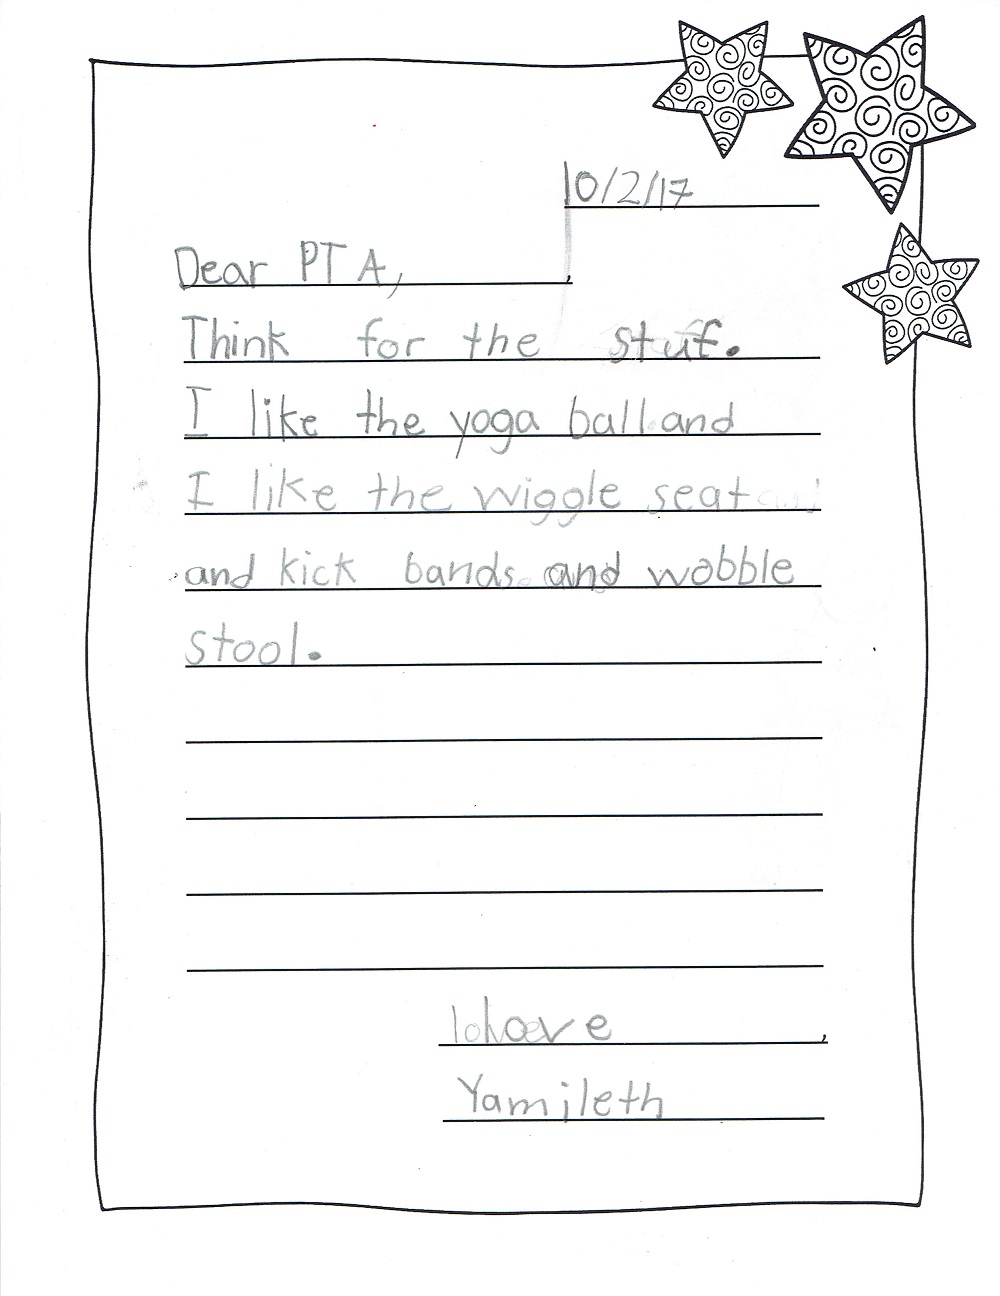 10/2/17
Dear PTA,
Think for the stuf.
I like the yoga ball and
I like the wiggle seat
and kick bands and wobble
stool.
love,
Yamileth